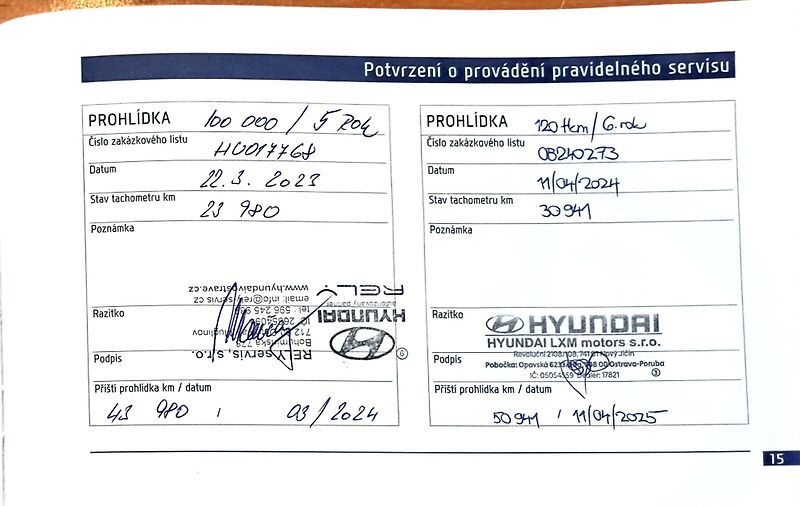 Potvrzení o provádění pravidelného servisu
PROHLÍDKA 100 000 / 5 Rok
Číslo zakázkového listu
HU017768
Datum
22. 3. 2023
Stav tachometru km
23 980
Poznámka
Razítko
RELY servis, s.r.o.
Bohumínská
712
tel.: 596 245
email: info@rely-servis.cz
www.hyundaivostrave.cz
HYUNDAI
autorizovaný partner
RELY
6
Podpis
Příští prohlídka km / datum
43 980 / 03/2024
PROHLÍDKA 120tkm/6.rok
Číslo zakázkového listu
OB240273
Datum
11/04/2024
Stav tachometru km
30941
Poznámka
Razítko
HYUNDAI
HYUNDAI LXM motors s.r.o.
Revoluční 2108/108, 741 01 Nový Jičín
Pobočka: Opavská 00 Ostrava-Poruba
IČ: 05054559 Dealer: 17821
3
Podpis
Příští prohlídka km / datum
50941 / 11/04/2025
15